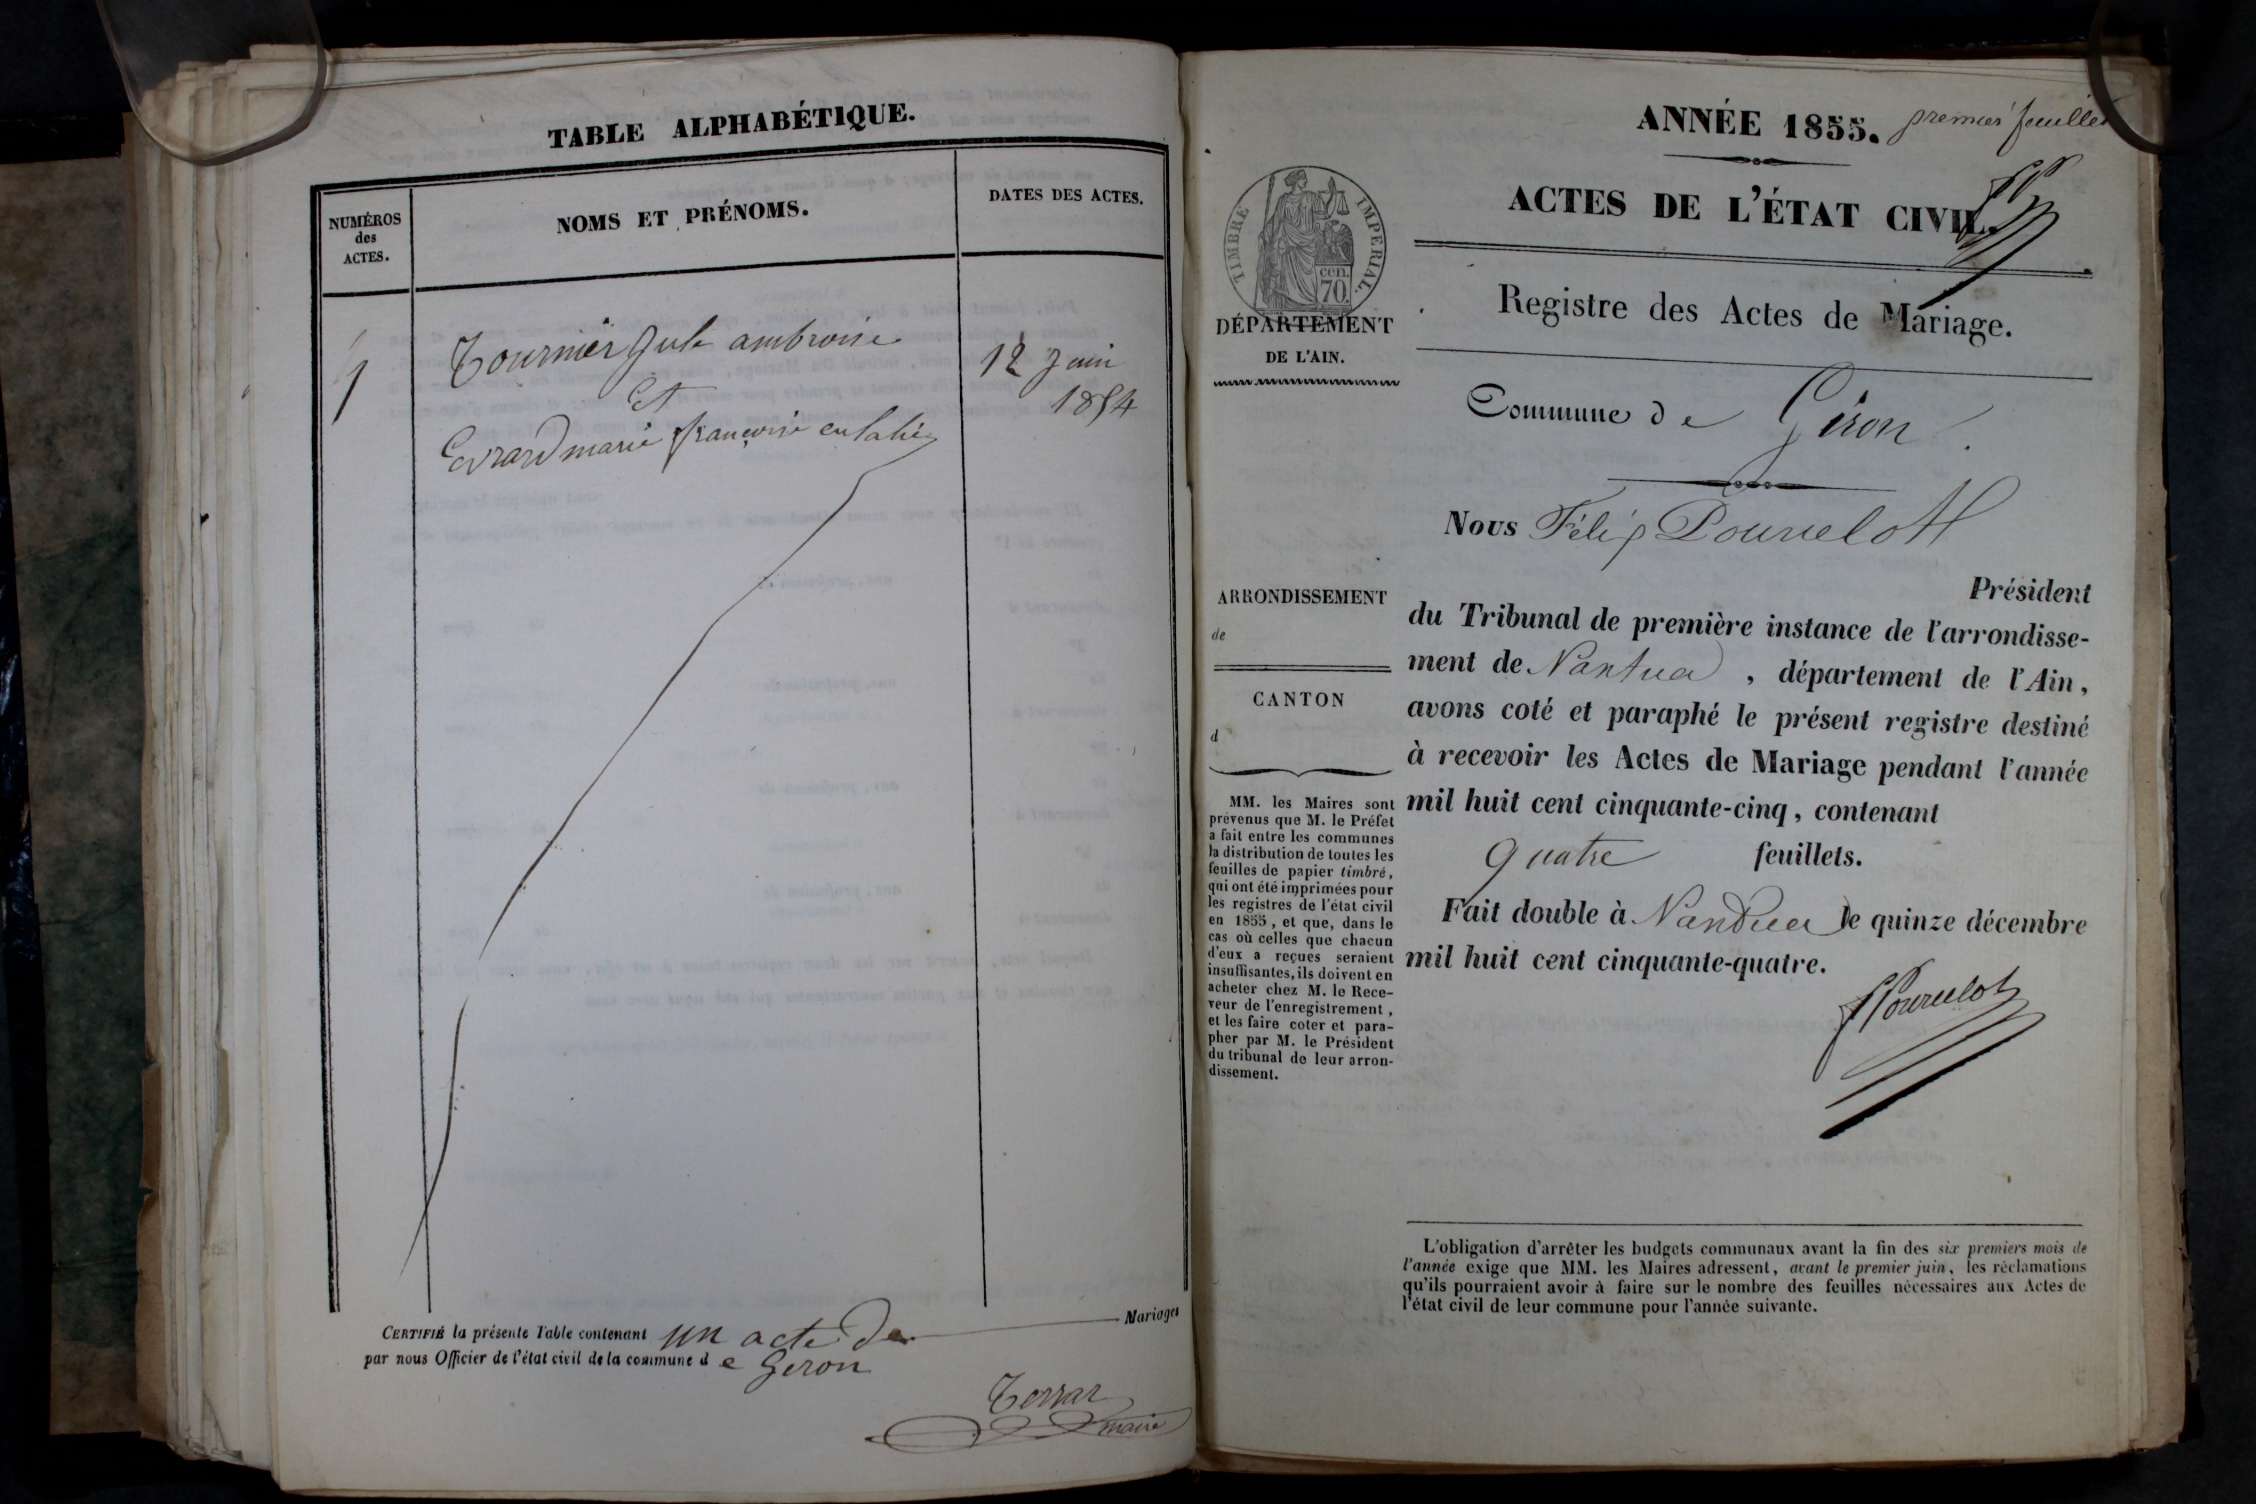 TABLE ALPHABÉTIQUE.
NUMÉROS
des
ACTES.
NOMS ET PRÉNOMS.
DATES DES ACTES.
1
Tournier Jule ambroise
Et
Evrard marie françoise eulalie
12 Juin
1854
CERTIFIÉ la présente Table contenant un acte de Mariages
par nous Officier de l'état civil de la commune de Geron
maire
ANNÉE 1855. premier feuillet
ACTES DE L'ÉTAT CIVIL.
TIMBRE IMPERIAL
cen.
70.
DÉPARTEMENT
DE L'AIN.
Registre des Actes de Mariage.
Commune de Giron
Nous Félix Pourcelot
Président
ARRONDISSEMENT
de
CANTON
d
MM. les Maires sont
prévenus que M. le Préfet
a fait entre les communes
la distribution de toutes les
feuilles de papier timbré,
qui ont été imprimées pour
les registres de l'état civil
en 1855, et que, dans le
cas où celles que chacun
d'eux a reçues seraient
insuffisantes, ils doivent en
acheter chez M. le Rece-
veur de l'enregistrement,
et les faire coter et para-
pher par M. le Président
du tribunal de leur arron-
dissement.
du Tribunal de première instance de l'arrondisse-
ment de Nantua, département de l'Ain,
avons coté et paraphé le présent registre destiné
à recevoir les Actes de Mariage pendant l'année
mil huit cent cinquante-cinq, contenant
quatre feuillets.
Fait double à Nantua le quinze décembre
mil huit cent cinquante-quatre.
Pourcelot
L'obligation d'arrêter les budgets communaux avant la fin des six premiers mois de
l'année exige que MM. les Maires adressent, avant le premier juin, les réclamations
qu'ils pourraient avoir à faire sur le nombre des feuilles nécessaires aux Actes de
l'état civil de leur commune pour l'année suivante.